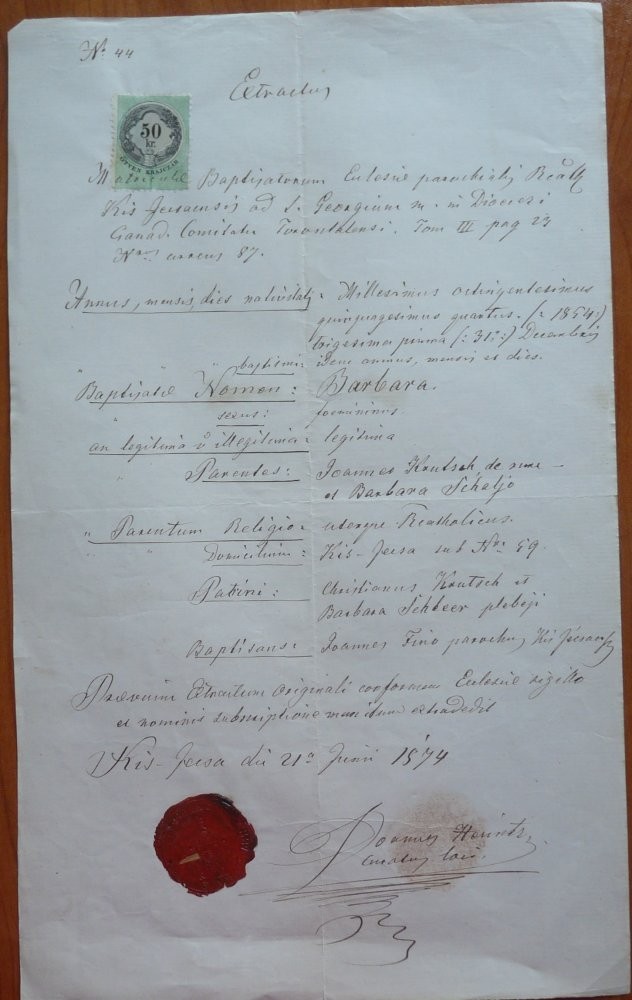 Nr 44
Extractus
50
kr.
ÖTVEN KRAJCZÁR
Matriculae Baptisatorum Eclesiae parochialis
Kis Jecsaensis ad S. Georgium m. in Dioecesi
Csanad. Comitatu Torontalensi. Tom III pag 23
Nro currens 87.
Annus, mensis, dies nativitatis: Millesimus octingentesimus
quinquagesimus quartus. (: 1854:)
trigesima prima (: 31a:) Decembris
" " " baptismi: idem annus, mensis et dies.
" Baptisatae Nomen: Barbara.
" sexus: foemininus.
an legitima v illegitima: legitima
" Parentes: Joannes Krutsch de
et Barbara
" Parentum Religio: uterque Rcatholicus.
" " Domicilium: Kis-Jecsa sub Nro 59.
Patrini: Christianus Krutsch et
Barbara plebeji
Baptisans: Joannes Fino parochus Kis Jécsaensis
Extractum originali conforme Eclesiae sigillo
et nominis subscriptione munitum extradedit
Kis-Jecsa die 21a Junii 1874
Joannes
loci.